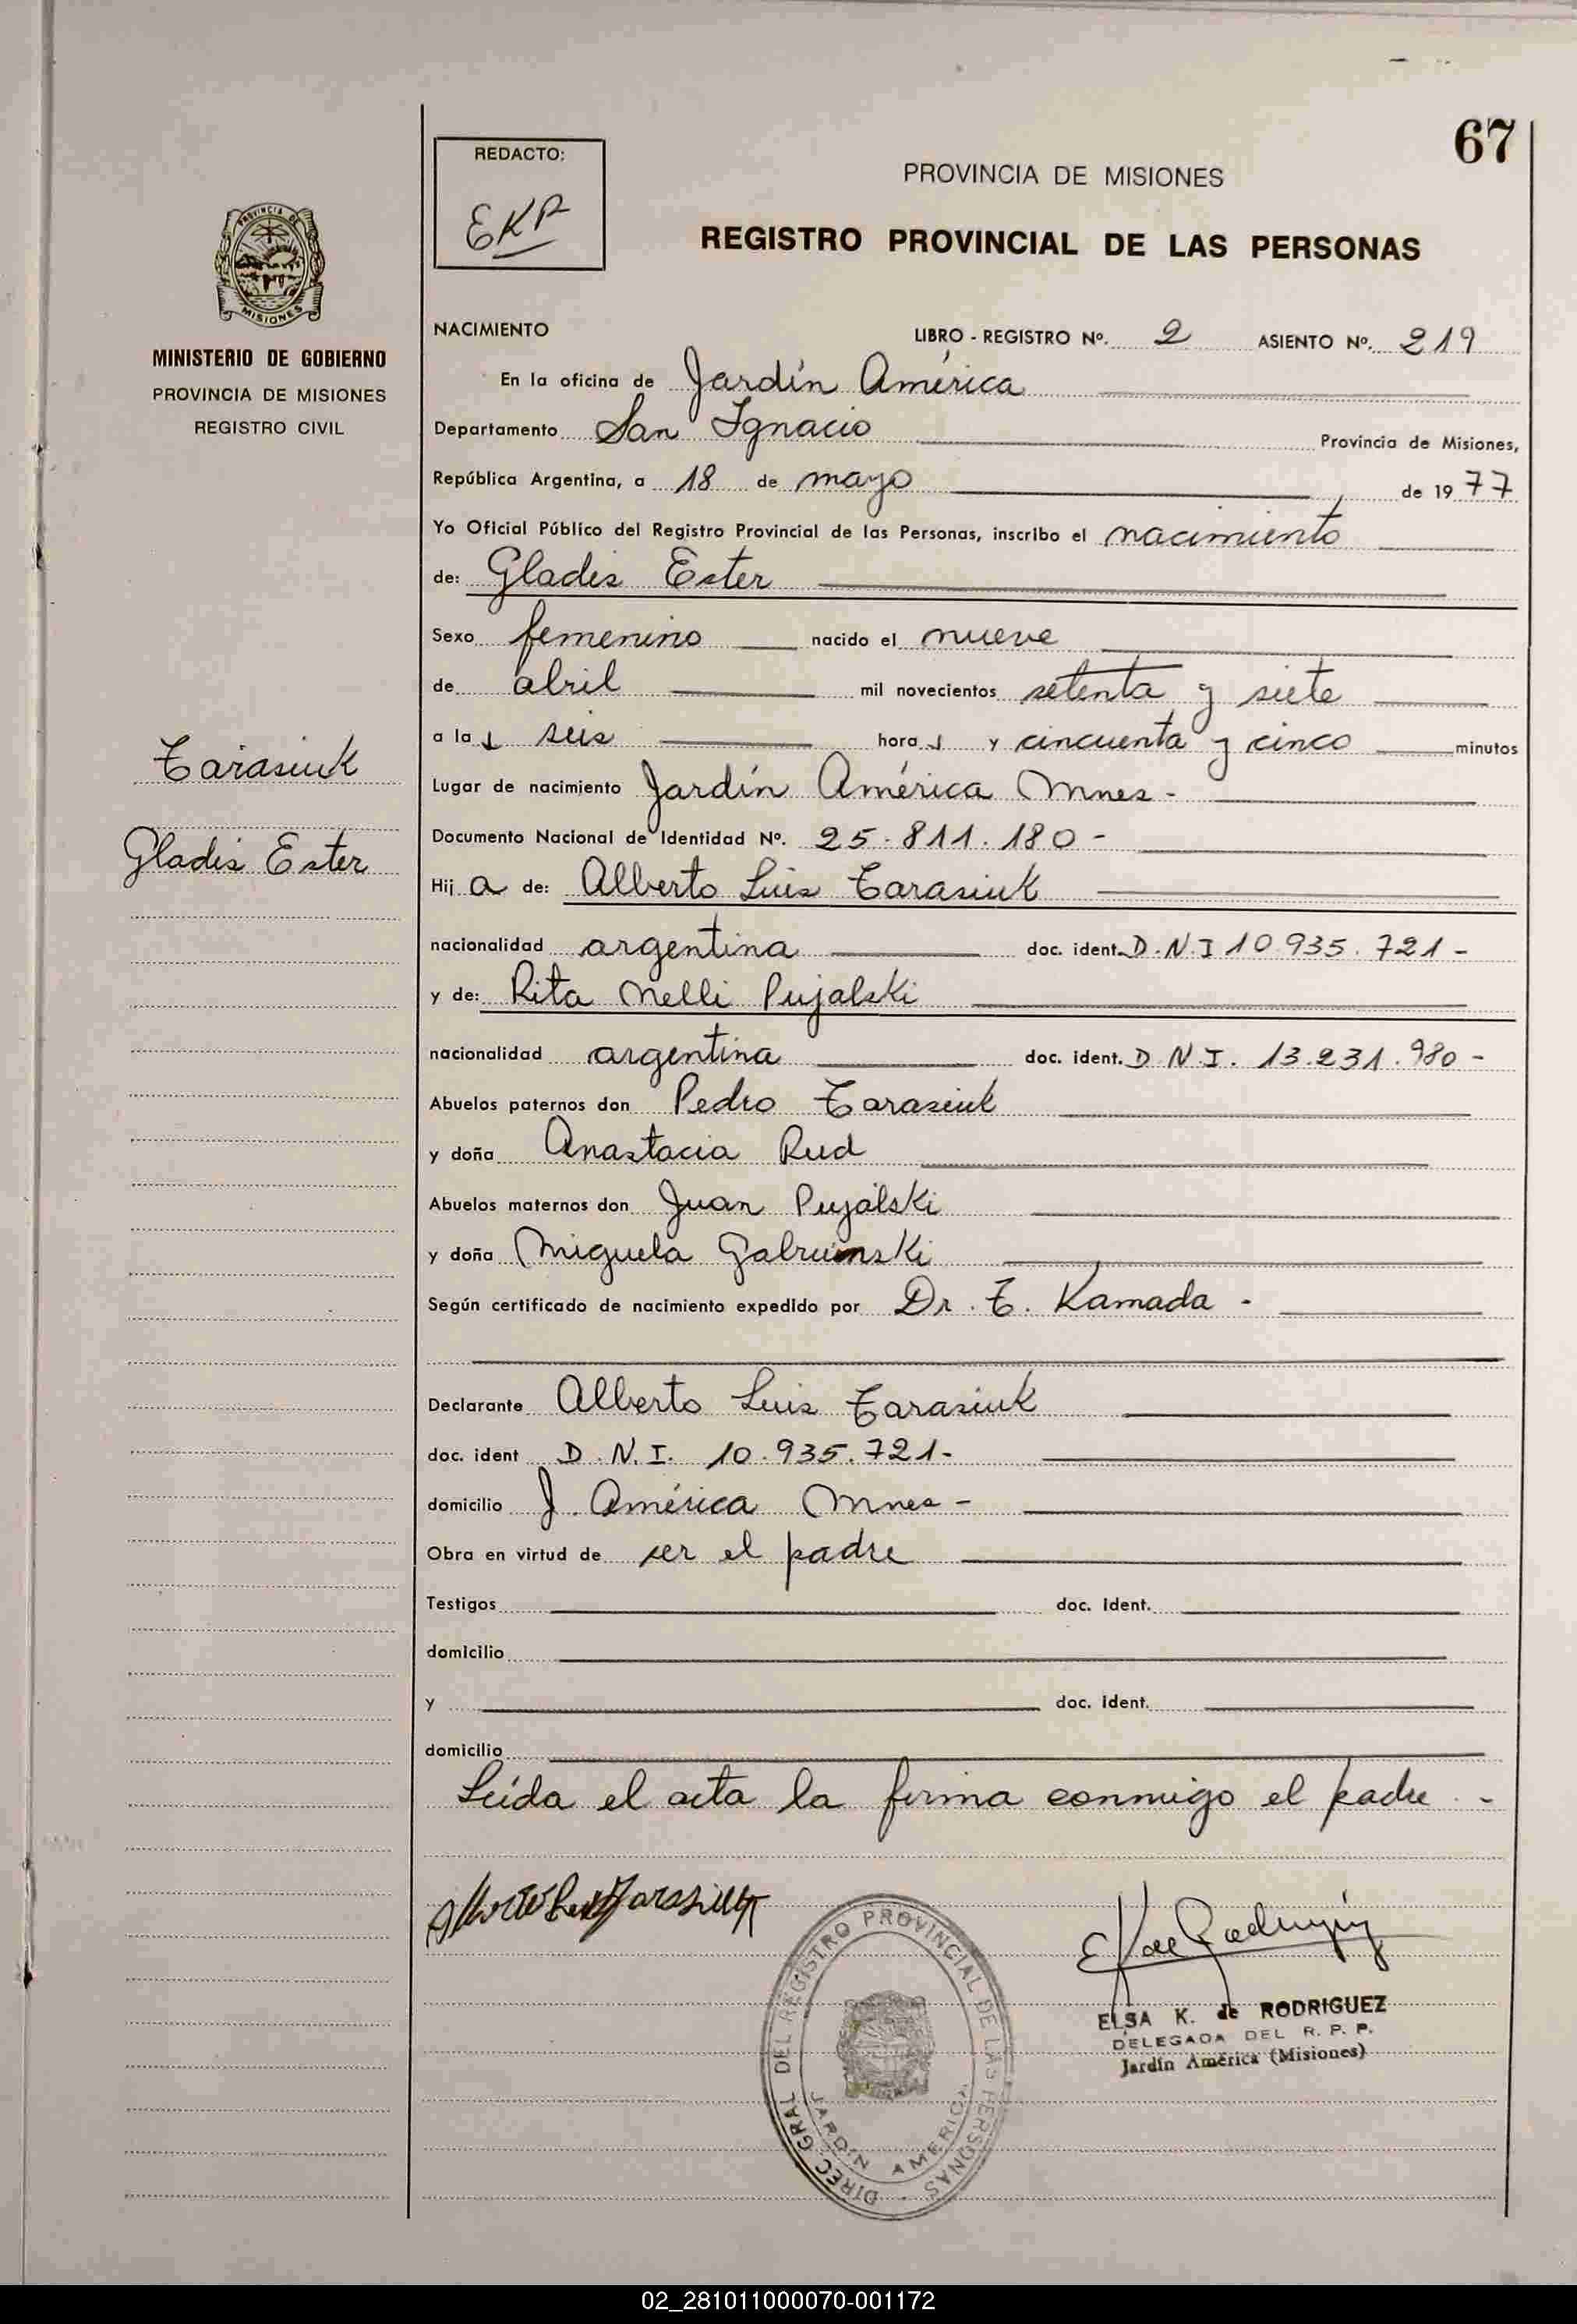 67
REDACTO:
EKR
PROVINCIA DE MISIONES
REGISTRO PROVINCIAL DE LAS PERSONAS
PROVINCIA DE
MISIONES
MINISTERIO DE GOBIERNO
PROVINCIA DE MISIONES
REGISTRO CIVIL
NACIMIENTO LIBRO - REGISTRO Nº. 2 ASIENTO Nº. 219
En la oficina de Jardín América
Departamento San Ignacio Provincia de Misiones,
República Argentina, a 18 de mayo de 1977
Yo Oficial Público del Registro Provincial de las Personas, inscribo el nacimiento
de: Gladis Ester
Sexo femenino nacido el nueve
de abril mil novecientos setenta y siete
a las seis horas y cincuenta y cinco minutos
Tarasiuk
Lugar de nacimiento Jardín América Mnes-
Documento Nacional de Identidad Nº. 25.811.180-
Gladis Ester
Hija de: Alberto Luis Tarasiuk
nacionalidad argentina doc. ident. D.N.I 10.935.721-
y de: Rita Nelli Pujalski
nacionalidad argentina doc. ident. D.N.I. 13.231.980-
Abuelos paternos don Pedro Tarasiuk
y doña Anastacia Rud
Abuelos maternos don Juan Pujalski
y doña Miguela
Según certificado de nacimiento expedido por Dr. T. Kamada -
Declarante Alberto Luis Tarasiuk
doc. ident D.N.I. 10.935.721-
domicilio J. América Mnes-
Obra en virtud de ser el padre
Testigos doc. ident.
domicilio
y doc. ident.
domicilio
Leída el acta la firma conmigo el padre.-
DIREC. GRAL DEL REGISTRO PROVINCIAL DE LAS PERSONAS
JARDIN AMERICA
ELSA K. de RODRIGUEZ
DELEGADA DEL R. P. P.
Jardín América (Misiones)
02_281011000070-001172